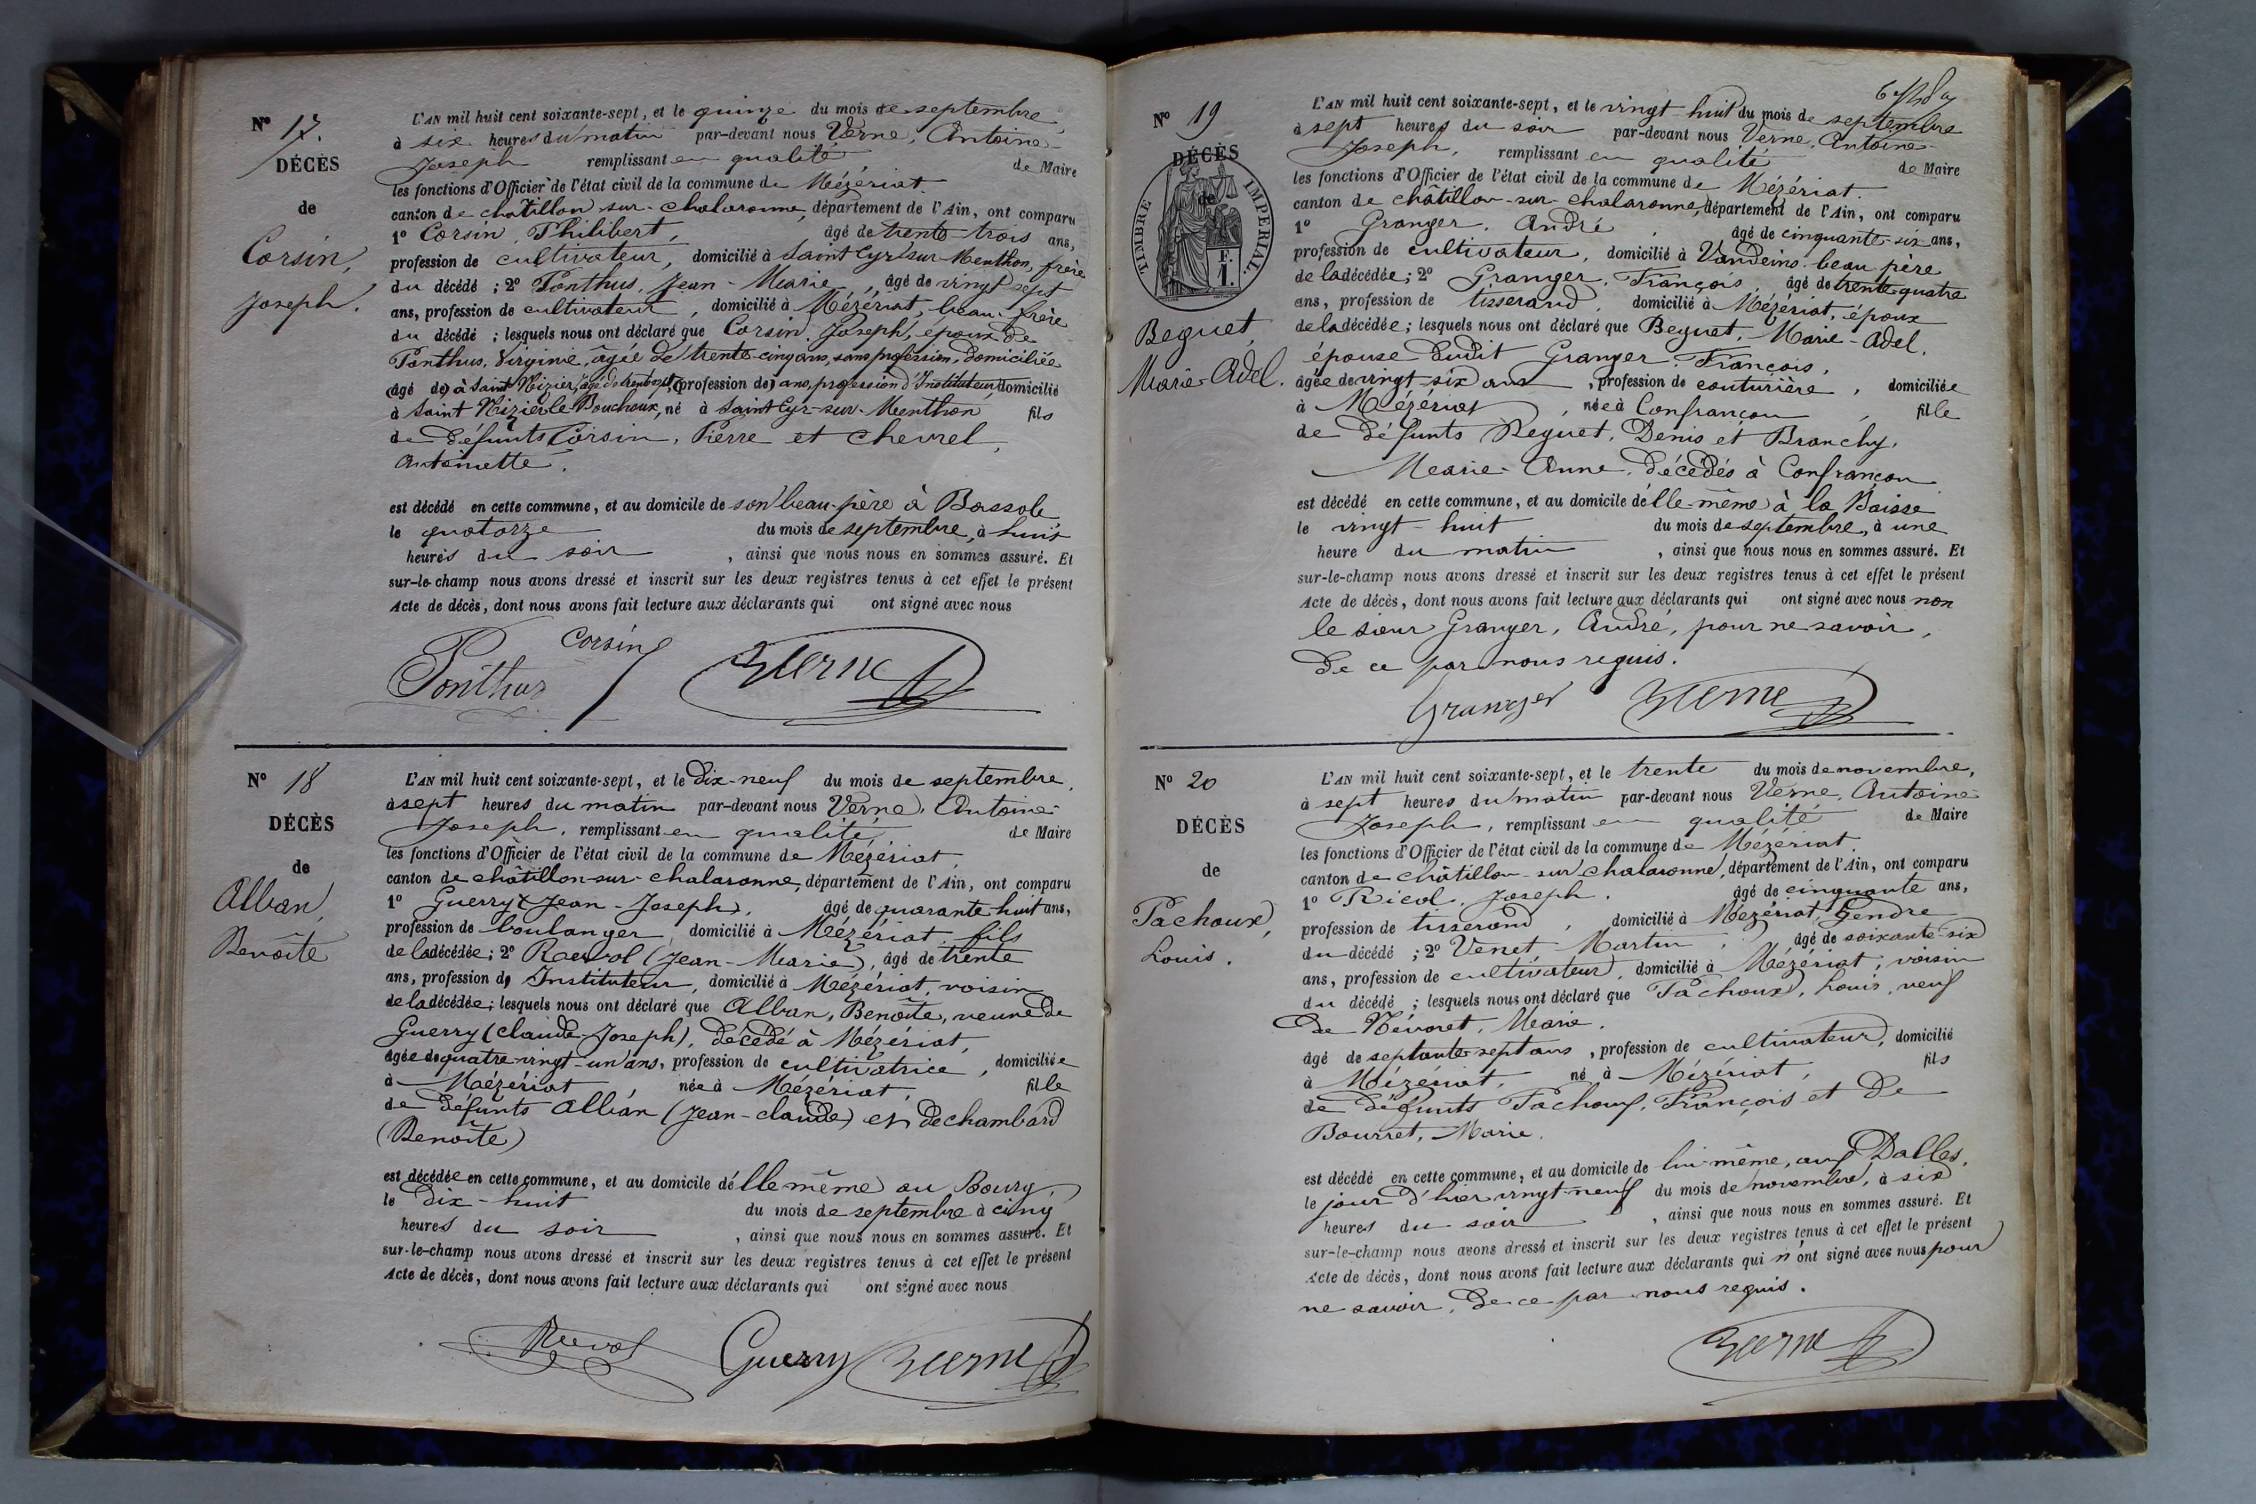 N° 17.
DÉCÈS
de
Corsin,
Joseph.
L'AN mil huit cent soixante-sept, et le quinze du mois de septembre,
à six heures du matin par-devant nous Verne, Antoine-
Joseph remplissant en qualité de Maire
les fonctions d'Officier de l'état civil de la commune de Mézériat.
canton de châtillon-sur-chalaronne, département de l'Ain, ont comparu
1° Corsin, Philibert, âgé de trente-trois ans,
profession de cultivateur, domicilié à Saint Cyr sur Menthon, frère
du décédé ; 2° Ponthus, Jean-Marie, âgé de vingt sept
ans, profession de cultivateur, domicilié à Mézériat, beau-frère
du décédé ; lesquels nous ont déclaré que Corsin, Joseph, époux de
Ponthus, Virginie, âgée de trente-cinq ans, sans profession, domiciliée
(âgé de) à Saint Nizier, âgé de trente sept (profession de) ans, profession d'Instituteur, domicilié
à Saint Nizier le Bouchoux, né à Saint Cyr-sur-Menthon fils
de défunts Corsin, Pierre et Chevrel,
Antoinette.
est décédé en cette commune, et au domicile de son beau-père à Bassole
le quatorze du mois de septembre, à huit
heures du soir, ainsi que nous nous en sommes assuré. Et
sur-le-champ nous avons dressé et inscrit sur les deux registres tenus à cet effet le présent
Acte de décès, dont nous avons fait lecture aux déclarants qui ont signé avec nous
Corsin
Ponthus Verne
N° 18
DÉCÈS
de
Alban,
Benoîte
L'AN mil huit cent soixante-sept, et le dix-neuf du mois de septembre,
à sept heures du matin par-devant nous Verne, Antoine-
Joseph, remplissant en qualité de Maire
les fonctions d'Officier de l'état civil de la commune de Mézériat,
canton de châtillon-sur-chalaronne, département de l'Ain, ont comparu
1° Guerry (Jean-Joseph), âgé de quarante huit ans,
profession de boulanger, domicilié à Mézériat, fils
de la décédée ; 2° Revol (Jean-Marie), âgé de trente
ans, profession d' Instituteur, domicilié à Mézériat, voisin
de la décédée ; lesquels nous ont déclaré que Alban, Benoîte, veuve de
Guerry (Claude-Joseph), décédé à Mézériat,
âgée de quatre-vingt-un ans, profession de cultivatrice, domiciliée
à Mézériat, née à Mézériat, fille
de défunts Alban (Jean-claude) et Dechambard
(Benoîte)
est décédée en cette commune, et au domicile d'elle même au Bourg,
le dix-huit du mois de septembre à cinq
heures du soir, ainsi que nous nous en sommes assuré. Et
sur-le-champ nous avons dressé et inscrit sur les deux registres tenus à cet effet le présent
Acte de décès, dont nous avons fait lecture aux déclarants qui ont signé avec nous
Revol Guerry Verne
N° 19
DÉCÈS
de
TIMBRE IMPERIAL.
F.
1.
Beguet,
Marie-Adel.
L'AN mil huit cent soixante-sept, et le vingt-huit du mois de septembre
à sept heures du soir par-devant nous Verne, Antoine-
Joseph, remplissant en qualité de Maire
les fonctions d'Officier de l'état civil de la commune de Mézériat.
canton de châtillon-sur-chalaronne, département de l'Ain, ont comparu
1° Granger, André, âgé de cinquante-six ans,
profession de cultivateur, domicilié à Vandeins beau père
de la décédée ; 2° Granger, François, âgé de trente quatre
ans, profession de tisserand, domicilié à Mézériat, époux
de la décédée ; lesquels nous ont déclaré que Beguet, Marie-Adel,
épouse dudit Granger, François,
âgée de vingt-six ans, profession de couturière, domiciliée
à Mézériat, née à Confrançon, fille
de défunts Beguet, Denis et Branchy,
Marie-Anne, décédés à Confrançon
est décédé en cette commune, et au domicile d'elle-même à la Baisse
le vingt-huit du mois de septembre, à une
heure du matin, ainsi que nous nous en sommes assuré. Et
sur-le-champ nous avons dressé et inscrit sur les deux registres tenus à cet effet le présent
Acte de décès, dont nous avons fait lecture aux déclarants qui ont signé avec nous non
le sieur Granger, André, pour ne savoir,
de ce par nous requis.
Granger Verne
N° 20
DÉCÈS
de
Pachoux,
Louis.
L'AN mil huit cent soixante-sept, et le trente du mois de novembre,
à sept heures du matin par-devant nous Verne, Antoine-
Joseph, remplissant en qualité de Maire
les fonctions d'Officier de l'état civil de la commune de Mézériat.
canton de châtillon-sur-chalaronne, département de l'Ain, ont comparu
1° Ricol, Joseph, âgé de cinquante ans,
profession de tisserand, domicilié à Mézériat, Gendre
du décédé ; 2° Venet Martin, âgé de soixante-six
ans, profession de cultivateur, domicilié à Mézériat, voisin
du décédé ; lesquels nous ont déclaré que Pachoux, Louis, veuf
de Névoret, Marie.
âgé de septante-sept ans, profession de cultivateur, domicilié
à Mézériat, né à Mézériat, fils
de défunts Pachoux, François et De
Bourret, Marie.
est décédé en cette commune, et au domicile de lui-même, aux Dalles,
le jour d'hier vingt-neuf du mois de novembre, à six
heures du soir, ainsi que nous nous en sommes assuré. Et
sur-le-champ nous avons dressé et inscrit sur les deux registres tenus à cet effet le présent
Acte de décès, dont nous avons fait lecture aux déclarants qui n'ont signé avec nous pour
ne savoir, de ce par nous requis.
Verne